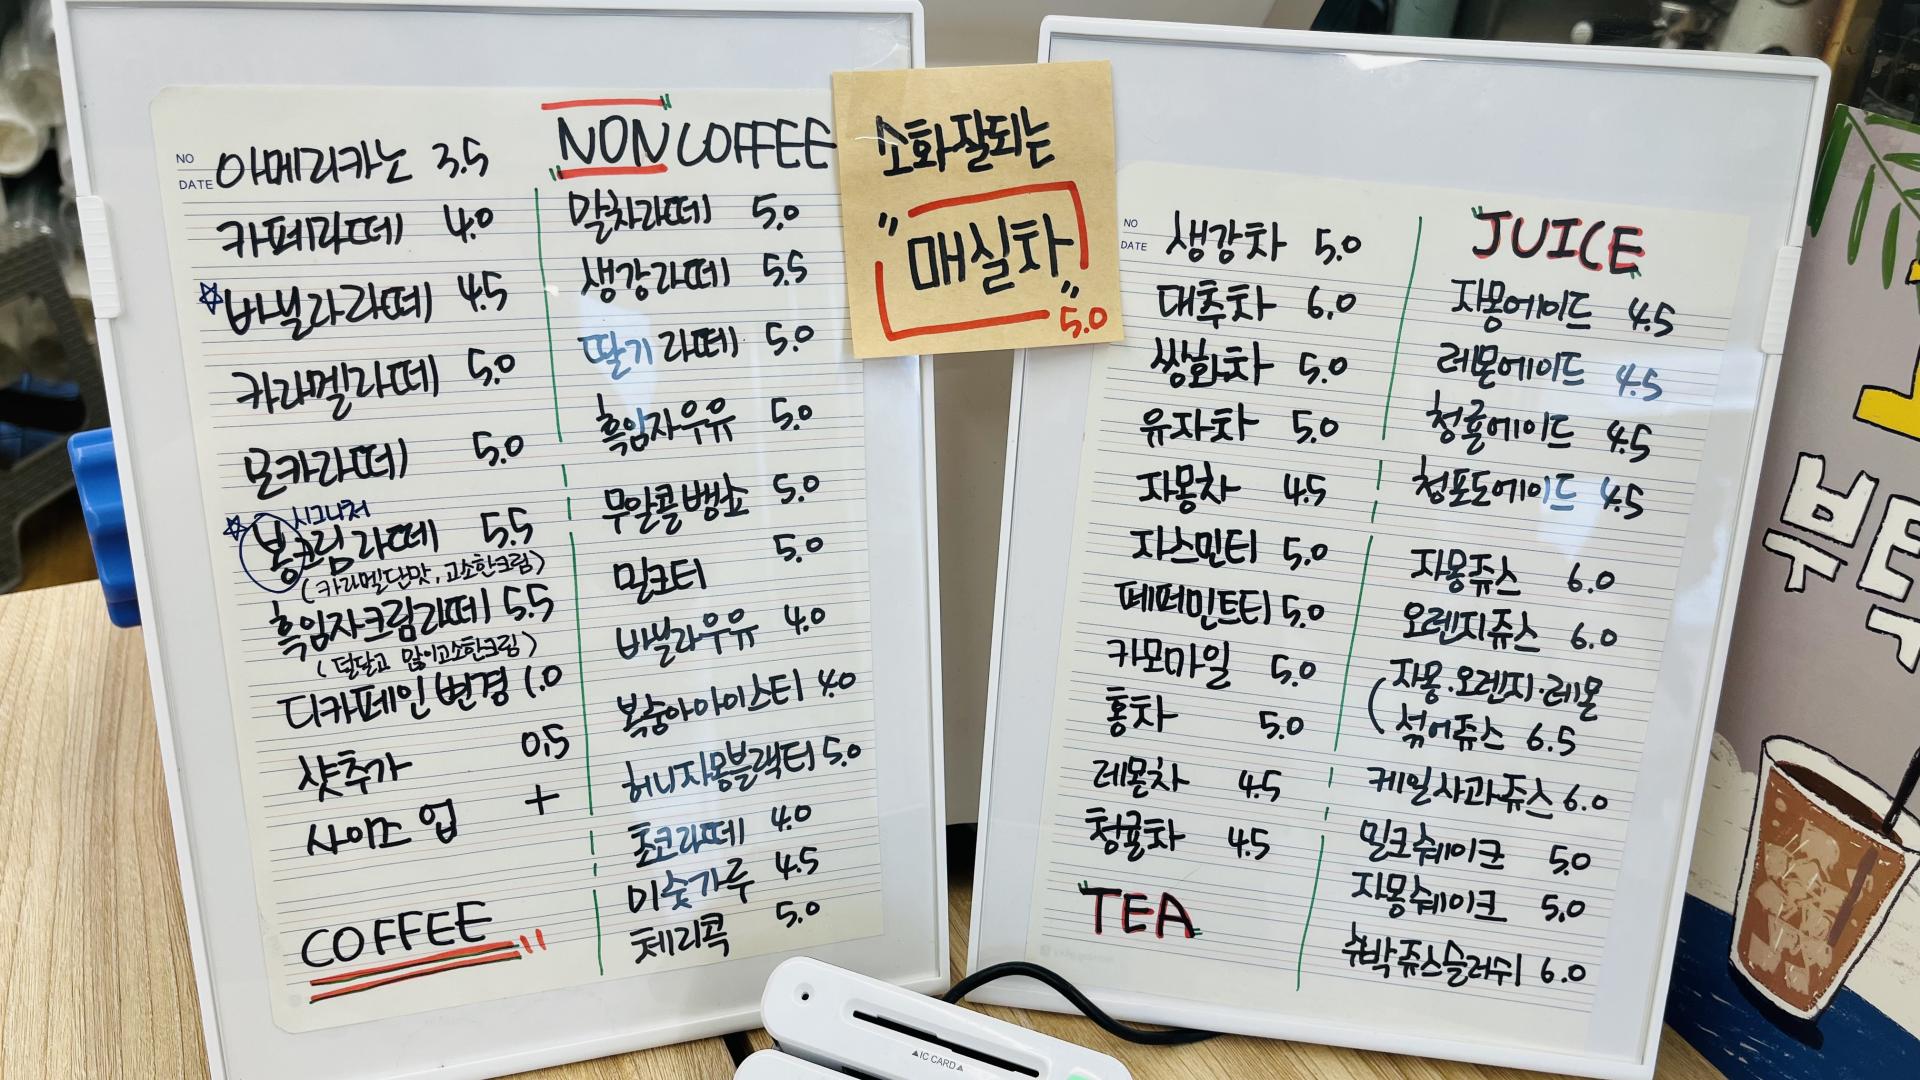 NO
DATE
아메리카노 3.5
카페라떼 4.0
바닐라라떼 4.5
카라멜라떼 5.0
모카라떼 5.0
시그니처
봉크림라떼 5.5
(카라멜단맛, 고소한크림)
흑임자크림라떼 5.5
(덜달고 많이고소한크림)
디카페인변경 1.0
샷추가 0.5
사이즈 업 +
COFFEE
"NON COFFEE
말차라떼 5.0
생강라떼 5.5
딸기라떼 5.0
흑임자우유 5.0
무알콜뱅쇼 5.0
밀크티 5.0
바닐라우유 4.0
복숭아아이스티 4.0
허니자몽블랙티 5.0
초코라떼 4.0
미숫가루 4.5
체리콕 5.0
소화잘되는
"매실차"
5.0
NO
DATE
생강차 5.0
대추차 6.0
쌍화차 5.0
유자차 5.0
자몽차 4.5
자스민티 5.0
페퍼민트티 5.0
카모마일 5.0
홍차 5.0
레몬차 4.5
청귤차 4.5
TEA
JUICE
자몽에이드 4.5
레몬에이드 4.5
청귤에이드 4.5
청포도에이드 4.5
자몽쥬스 6.0
오렌지쥬스 6.0
(자몽·오렌지·레몬
섞어쥬스 6.5
케일사과쥬스 6.0
밀크쉐이크 5.0
자몽쉐이크 5.0
수박쥬스슬러쉬 6.0
▲IC CARD▲